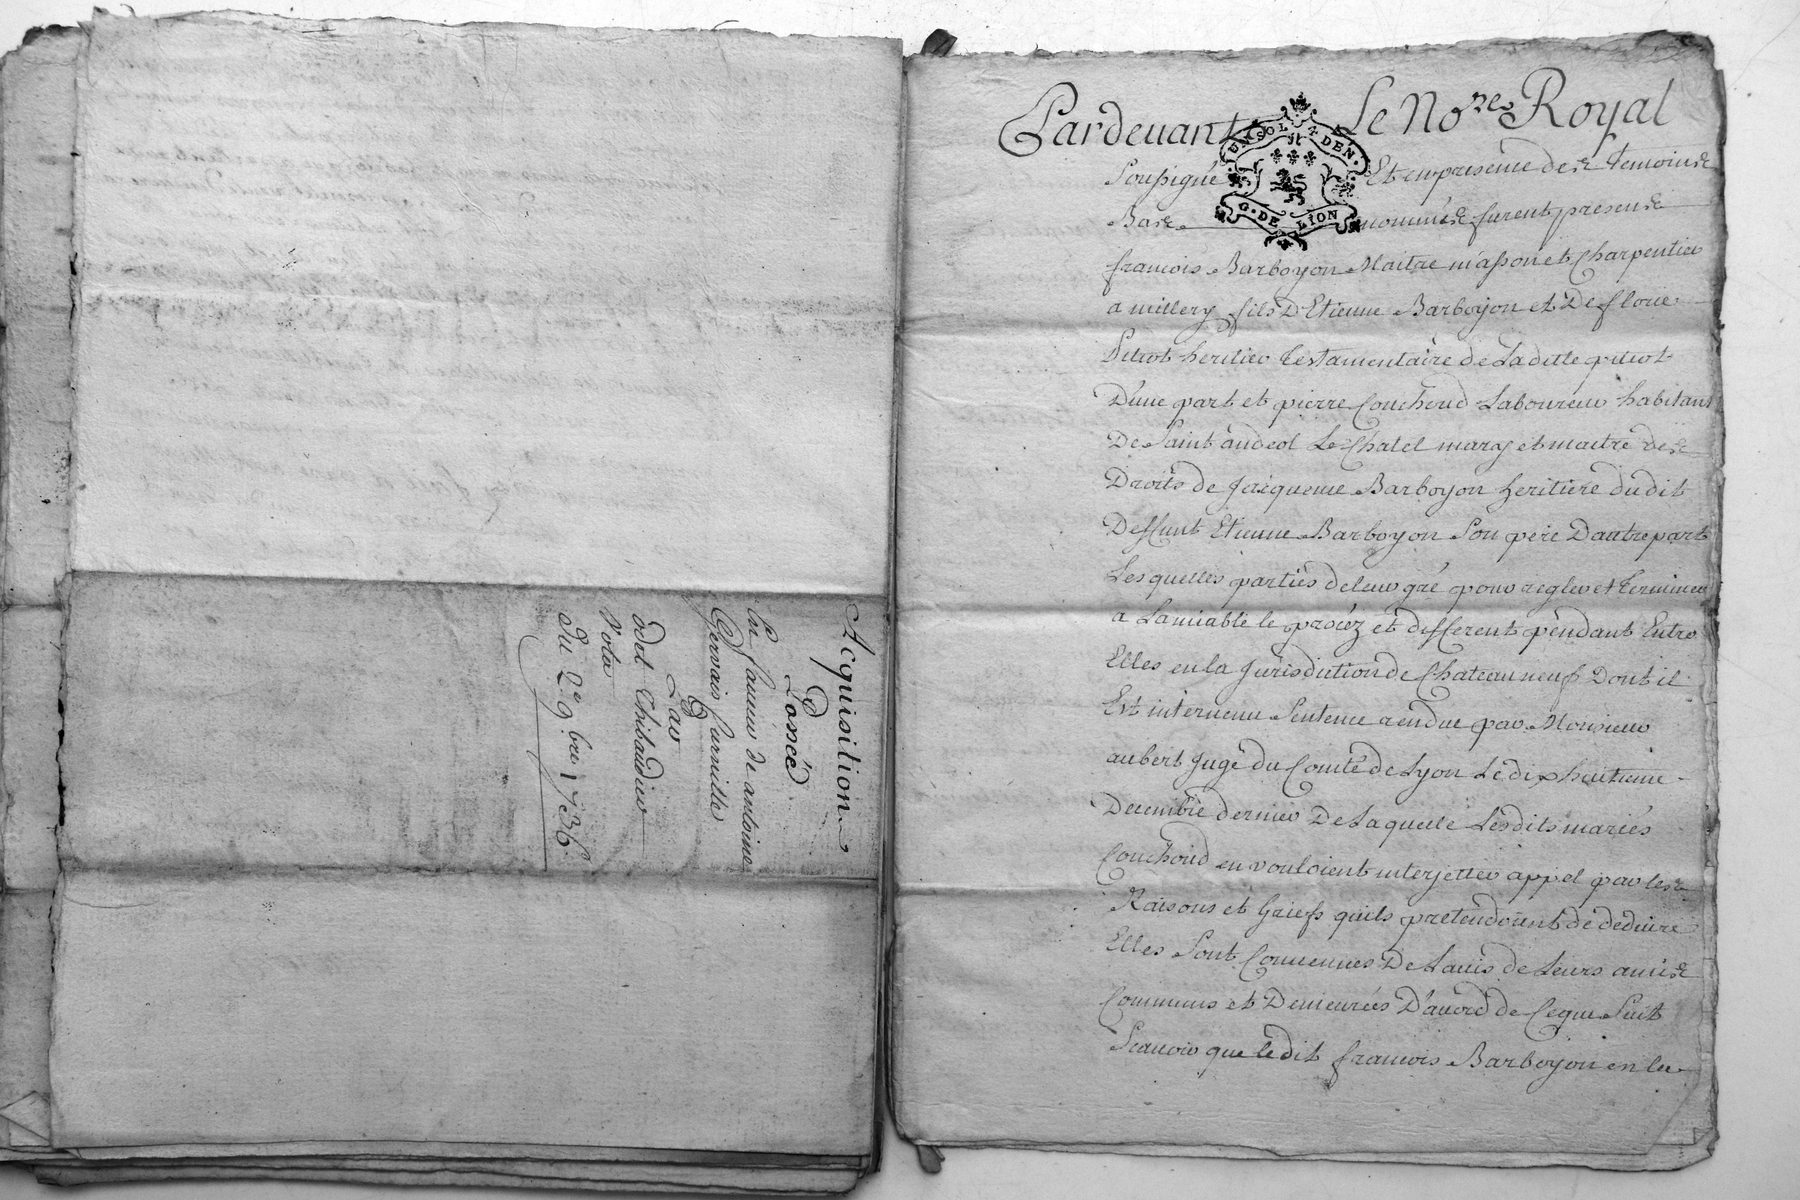 Acquisition
Passée
En faueur de antoine
Geruais
Par
odet Thibaudier
Du 2e 9bre 1736
Pardeuant Le Nore Royal
UN SOL 4 DEN.
G. DE LION
Soupsigné Et en presence des Temoins
Bas nommés furent presens
francois Barboyon Maitre masson et Charpentier
a millery fils D'Etienne Barboyon et De florie
Pitiot heritier Testamentaire de Laditte pitiot
D'une part et pierre Couchoud Laboureur habitant
De Saint andeol Le Chatel mary et maitre des
Droits de Jacqueme Barboyon heritiere dudit
Deffunt Etienne Barboyon Son pere D'autre part
Lesquelles parties de leur gré pour regler et Terminer
a Lamiable le procéz et different pendant Entre
Elles en la Jurisdiction de Chateauneuf Dont il
Est interuenu Sentence rendue par Monsieur
aubert Juge du Comté de Lyon Le dix huitieme
Decembre dernier De Laquelle Lesdits mariés
Couchoud en vouloient interjetter appel par les
Raisons et Griefs quils pretendoient de deduire
Elles Sont Conuenues De Lauis de Leurs amis
Communs et Demeurées D'acord de Ceque Suit
Scauoir que ledit francois Barboyon en la